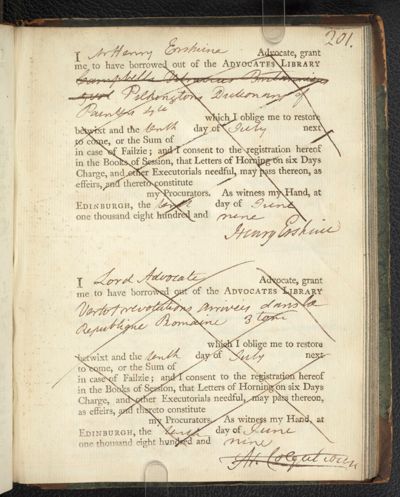 201.
I Mr Henry Erskine Advocate, grant
me to have borrowed out of the ADVOCATES LIBRARY
Campbells Vitruvius Britannicus
Pilkingtons Dictionary of
Painters
which I oblige me to restore
betwixt and the tenth day of July next
to come, or the Sum of
in case of Failzie; and I consent to the registration hereof
in the Books of Session, that Letters of Horning on six Days
Charge, and other Executorials needful, may pass thereon, as
effeirs, and thereto constitute
my Procurators. As witness my Hand, at
EDINBURGH, the tenth day of June
one thousand eight hundred and nine
Henry Erskine
I Lord Advocate Advocate, grant
me to have borrowed out of the ADVOCATES LIBRARY
Vertot revolutions arrivées dans la
Republique Romaine 3 tom
which I oblige me to restore
betwixt and the tenth day of July next
to come, or the Sum of
in case of Failzie; and I consent to the registration hereof
in the Books of Session, that Letters of Horning on six Days
Charge, and other Executorials needful, may pass thereon,
as effeirs, and thereto constitute
my Procurators. As witness my Hand, at
EDINBURGH, the tenth day of June
one thousand eight hundred and nine
Ar. Colquhoun